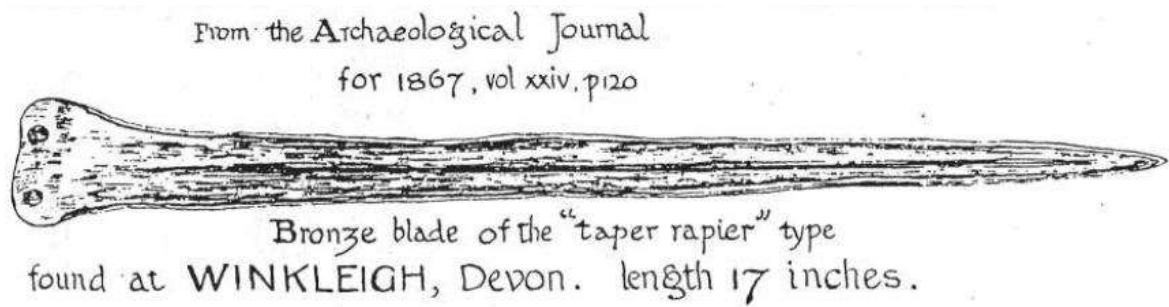 From the Archaeological Journal
for 1867, vol xxiv, p120
Bronze blade of the "taper rapier" type
found at WINKLEIGH, Devon. length 17 inches.